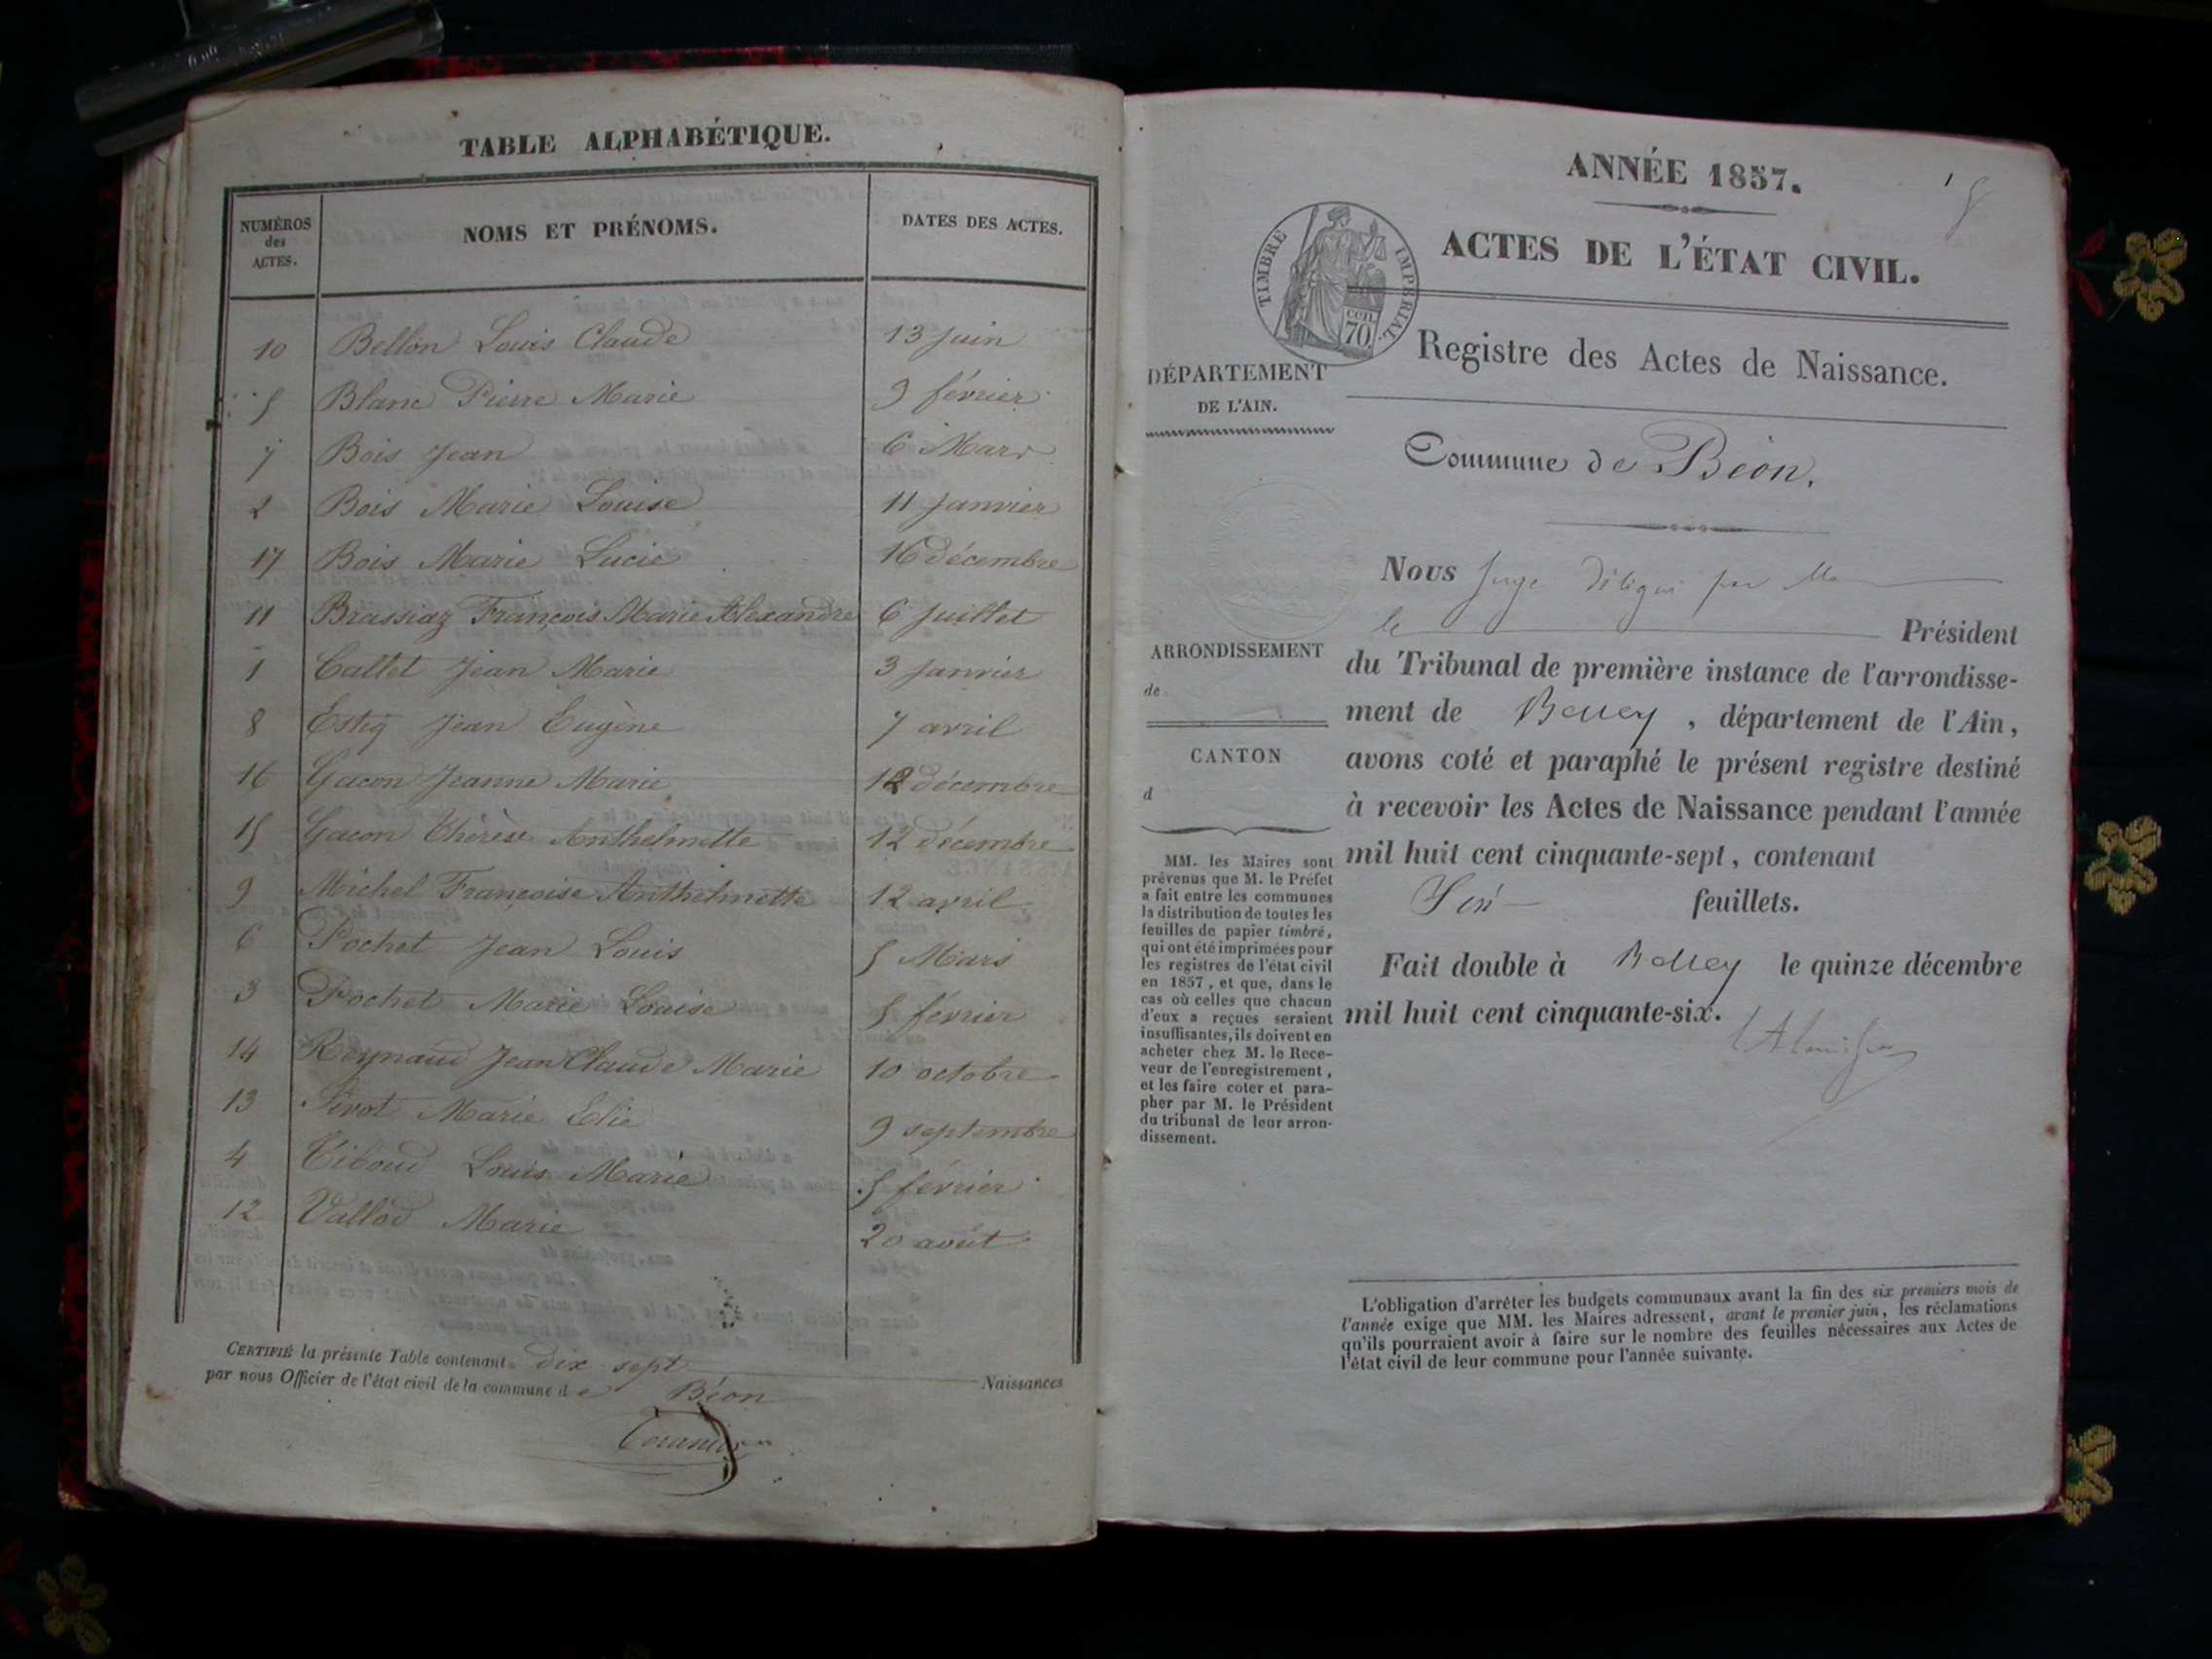 TABLE ALPHABÉTIQUE.
NUMÉROS des ACTES. NOMS ET PRÉNOMS. DATES DES ACTES.
10 Bellon Louis Claude 13 juin
5 Blanc Pierre Marie 9 février
7 Bois Jean 6 Mars
2 Bois Marie Louise 11 janvier
17 Bois Marie Lucie 16 décembre
11 Brassiaz François Marie Alexandre 6 juillet
1 Callet Jean Marie 3 janvier
8 Jean Eugène 7 avril
16 Gacon Jeanne Marie décembre
15 Gacon Thérèse Anthelmette 12 décembre
9 Michel Françoise Anthelmette 12 avril
6 Pochet Jean Louis 5 Mars
3 Pochet Marie Louise 5 février
14 Reynaud Jean Claude Marie 10 octobre
13 Sivot Marie Elie 9 septembre
4 Tiboud Louis Marie 5 février
12 Vallod Marie 20 août
CERTIFIÉ la présente Table contenant dix sept Naissances
par nous Officier de l'état civil de la commune de Béon
ANNÉE 1857.
ACTES DE L'ÉTAT CIVIL.
TIMBRE IMPÉRIAL.
cen. 70.
Registre des Actes de Naissance.
DÉPARTEMENT
DE L'AIN.
Commune de Béon.
Nous Juge Délégué par M
le Président
du Tribunal de première instance de l'arrondisse-
ment de Belley, département de l'Ain,
avons coté et paraphé le présent registre destiné
à recevoir les Actes de Naissance pendant l'année
mil huit cent cinquante-sept, contenant
feuillets.
Fait double à Belley le quinze décembre
mil huit cent cinquante-six.
ARRONDISSEMENT
de
CANTON
d
MM. les Maires sont
prévenus que M. le Préfet
a fait entre les communes
la distribution de toutes les
feuilles de papier timbré,
qui ont été imprimées pour
les registres de l'état civil
en 1857, et que, dans le
cas où celles que chacun
d'eux a reçues seraient
insuffisantes, ils doivent en
acheter chez M. le Rece-
veur de l'enregistrement,
et les faire coter et para-
pher par M. le Président
du tribunal de leur arron-
dissement.
L'obligation d'arrêter les budgets communaux avant la fin des six premiers mois de
l'année exige que MM. les Maires adressent, avant le premier juin, les réclamations
qu'ils pourraient avoir à faire sur le nombre des feuilles nécessaires aux Actes de
l'état civil de leur commune pour l'année suivante.